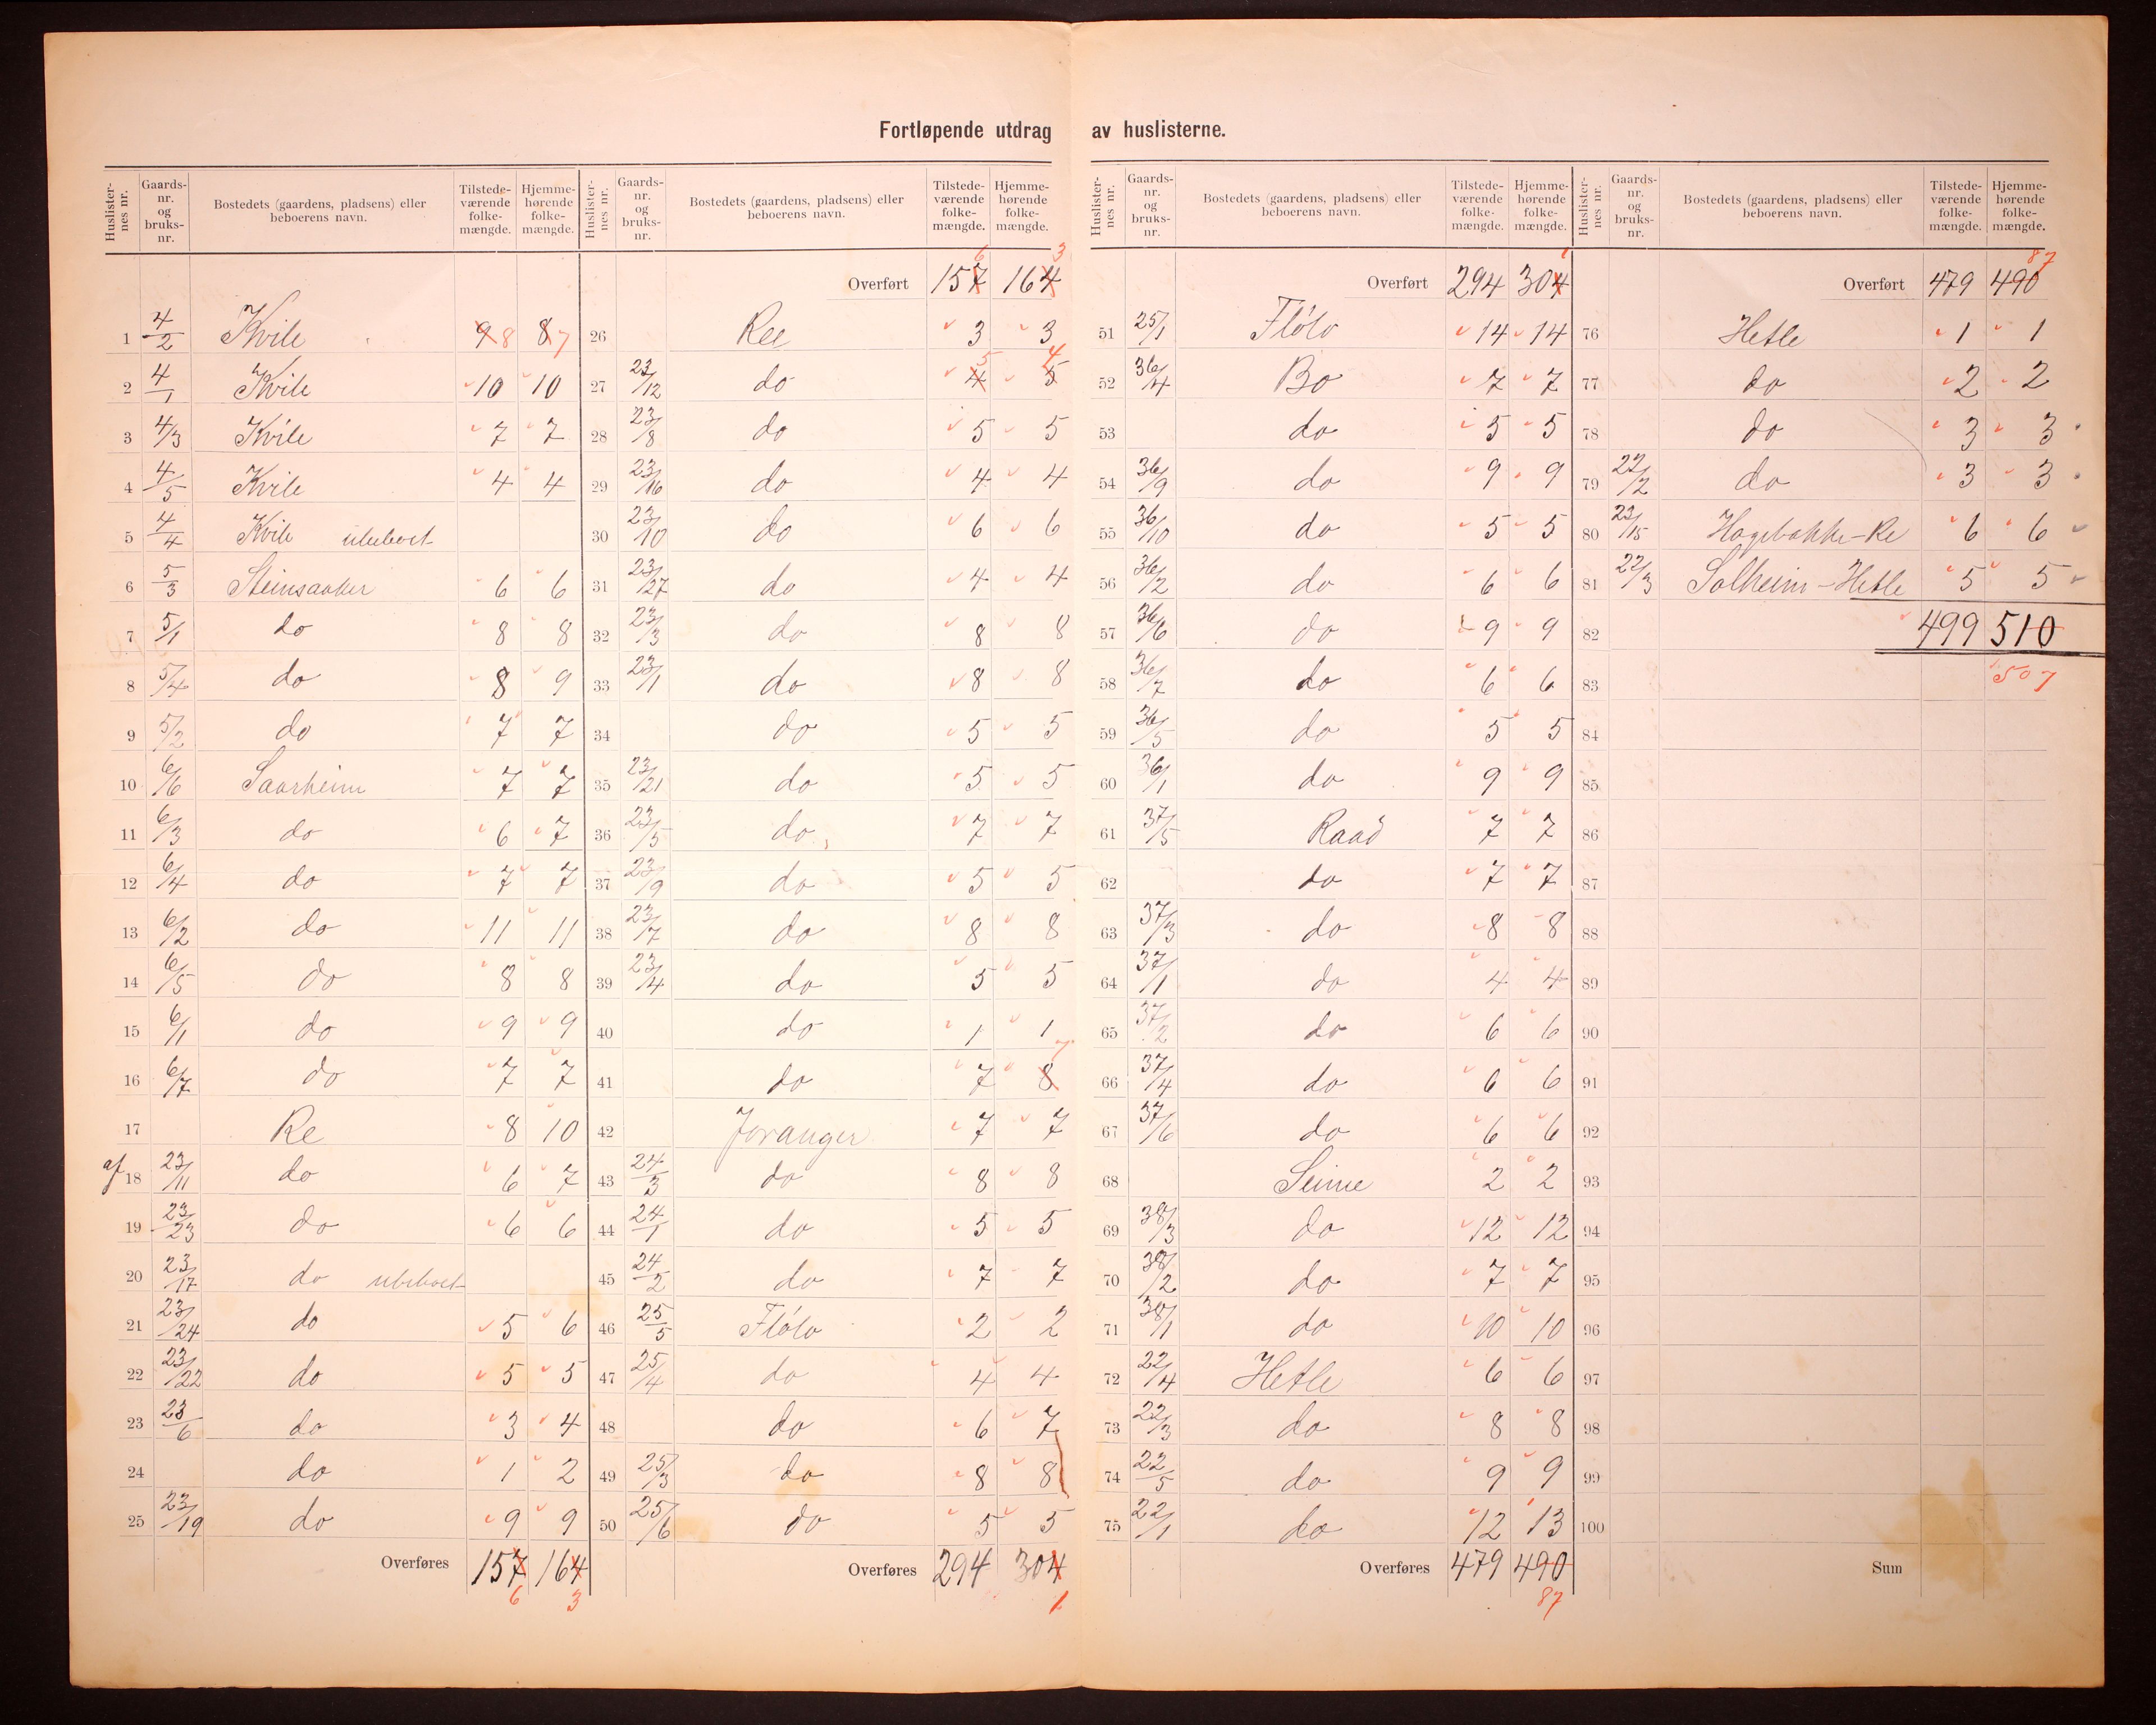 Fortløpende utdrag av huslisterne.
Huslister-nes nr. | Gaards-nr. og bruks-nr. | Bostedets (gaardens, pladsens) eller beboerens navn. | Tilstede-værende folke-mængde. | Hjemme-hørende folke-mængde.
1 4/2 Kvile 9 8 8 7
2 4/1 Kvile 10 10
3 4/3 Kvile 7 7
4 4/5 Kvile 4 4
5 4/4 Kvile ubeboet
6 5/3 Steinsaaker 6 6
7 5/1 do 8 8
8 5/4 do 8 9
9 5/2 do 7 7
10 6/6 Saarheim 7 7
11 6/3 do 6 7
12 6/4 do 7 7
13 6/2 do 11 11
14 6/5 do 8 8
15 6/1 do 9 9
16 6/7 do 7 7
17 Re 8 10
af 18 23/11 do 6 7
19 23/23 do 6 6
20 23/17 do ubeboet
21 23/24 do 5 6
22 23/22 do 5 5
23 23/6 do 3 4
24 do 1 2
25 23/19 do 9 9
Overføres 157 164
6 3
Huslister-nes nr. | Gaards-nr. og bruks-nr. | Bostedets (gaardens, pladsens) eller beboerens navn. | Tilstede-værende folke-mængde. | Hjemme-hørende folke-mængde.
6 3
Overført 157 164
26 Ree 3 3
27 23/12 do 4 5 5 4
28 23/8 do 5 5
29 23/16 do 4 4
30 23/10 do 6 6
31 23/27 do 4 4
32 23/3 do 8 8
33 23/1 do 8 8
34 do 5 5
35 23/21 do 5 5
36 23/5 do 7 7
37 23/9 do 5 5
38 23/7 do 8 8
39 23/4 do 5 5
40 do 1 1
41 do 7 8 7
42 Joranger 7 7
43 24/3 do 8 8
44 24/1 do 5 5
45 24/2 do 7 7
46 25/5 Flölo 2 2
47 25/4 do 4 4
48 do 6 7
49 25/3 do 8 8
50 25/6 do 5 5
Overføres 294 304
1
Huslister-nes nr. | Gaards-nr. og bruks-nr. | Bostedets (gaardens, pladsens) eller beboerens navn. | Tilstede-værende folke-mængde. | Hjemme-hørende folke-mængde.
1
Overført 294 304
51 25/1 Flölo 14 14
52 36/4 Bo 7 7
53 do 5 5
54 36/9 do 9 9
55 36/10 do 5 5
56 36/2 do 6 6
57 36/6 do 9 9
58 36/7 do 6 6
59 36/5 do 5 5
60 36/1 do 9 9
61 37/5 Raad 7 7
62 do 7 7
63 37/3 do 8 8
64 37/1 do 4 4
65 37/2 do 6 6
66 37/4 do 6 6
67 37/6 do 6 6
68 Seime 2 2
69 38/3 do 12 12
70 38/2 do 7 7
71 38/1 do 10 10
72 22/4 Hetle 6 6
73 22/3 do 8 8
74 22/5 do 9 9
75 22/1 do 12 13
Overføres 479 490
87
Huslister-nes nr. | Gaards-nr. og bruks-nr. | Bostedets (gaardens, pladsens) eller beboerens navn. | Tilstede-værende folke-mængde. | Hjemme-hørende folke-mængde.
87
Overført 479 490
76 Hetle 1 1
77 do 2 2
78 do 3 3
79 22/2 do 3 3
80 23/15 Hagebakke-Re 6 6
81 22/3 Solheim-Hetle 5 5
82 499 510
83 507
84
85
86
87
88
89
90
91
92
93
94
95
96
97
98
99
100
Sum